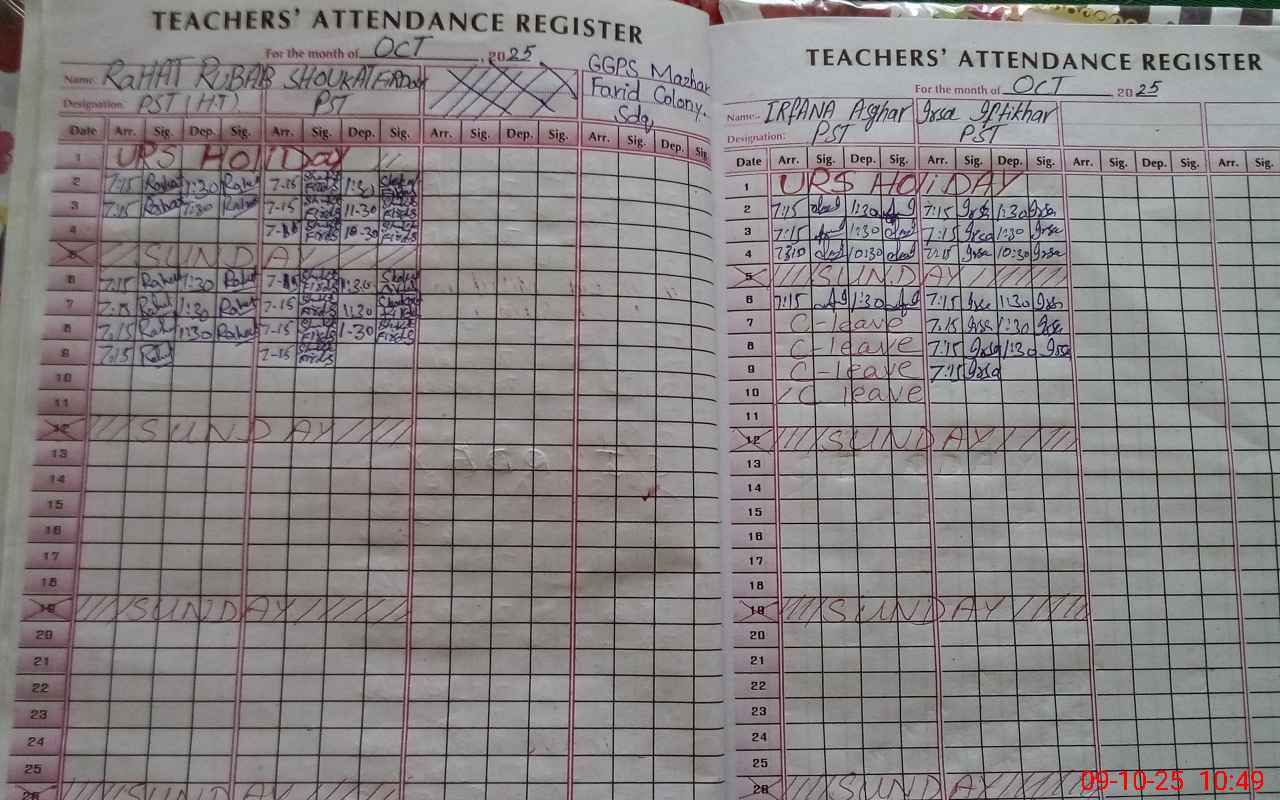 TEACHERS' ATTENDANCE REGISTER
For the month of OCT, 2025
Name: RaHAT RUBAB SHOUKAT FIRDOUS
GGPS Mazhar
Farid Colony.
Sdq
Designation: PST (H.T) PST
Date Arr. Sig. Dep. Sig. Arr. Sig. Dep. Sig. Arr. Sig. Dep. Sig. Arr. Sig. Dep. Sig.
1 URS HOLIDAY
2 7:15 Rahat 1:30 Rahat 7-15 1:30
3 7:15 Rahat 1:30 Rahat 7-15 11-30
4 7-15 10-30
5 SUNDAY
6 7:15 Rahat 1:30 Rahat 7-15 1:30
7 7:15 Rahat 1:30 Rahat 7-15 11:30
8 7:15 Rahat 1:30 Rahat 7-15 1-30
9 7:15 Rahat 7-15
10
11
12 SUNDAY
13
14
15
16
17
18
19 SUNDAY
20
21
22
23
24
25
26 SUNDAY
TEACHERS' ATTENDANCE REGISTER
For the month of OCT 2025
Name: IRFANA Asghar Irsa Iftikhar
Designation: PST PST
Date Arr. Sig. Dep. Sig. Arr. Sig. Dep. Sig. Arr. Sig. Dep. Sig. Arr. Sig.
1 URS HOLiDAY
2 7:15 1:30 7:15 Irsa 1:30 Irsa
3 7:15 1:30 7:15 Irsa 1:30 Irsa
4 10:30 7:15 Irsa 10:30 Irsa
5 SUNDAY
6 7:15 1:30 7:15 Irsa 1:30 Irsa
7 C-leave 7:15 Irsa 1:30 Irsa
8 C-leave 7:15 Irsa 1:30 Irsa
9 C-leave 7:15 Irsa
10 C leave
11
12 SUNDAY
13
14
15
16
17
18
19 SUNDAY
20
21
22
23
24
25
26 SUNDAY
09-10-25 10:49